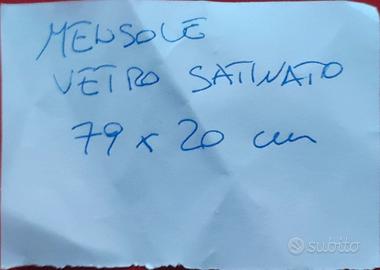 MENSOLE
VETRO SATINATO
79 x 20 cm
subito